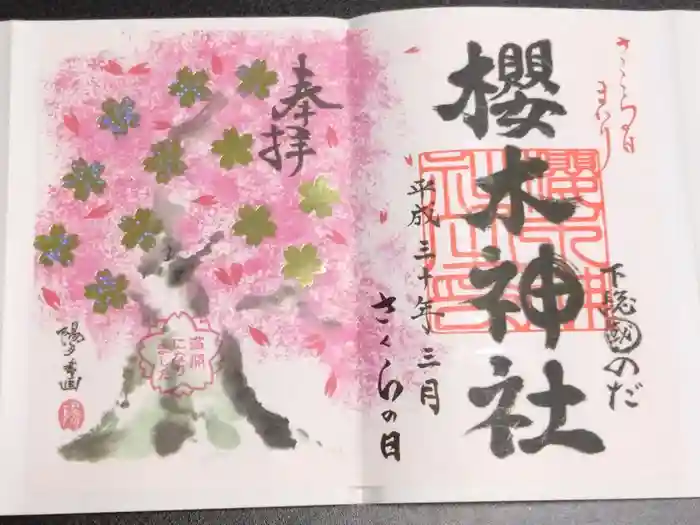 さくらの日
まいり
下総國のだ
櫻木神社
平成三十年三月
さくらの日
奉拝